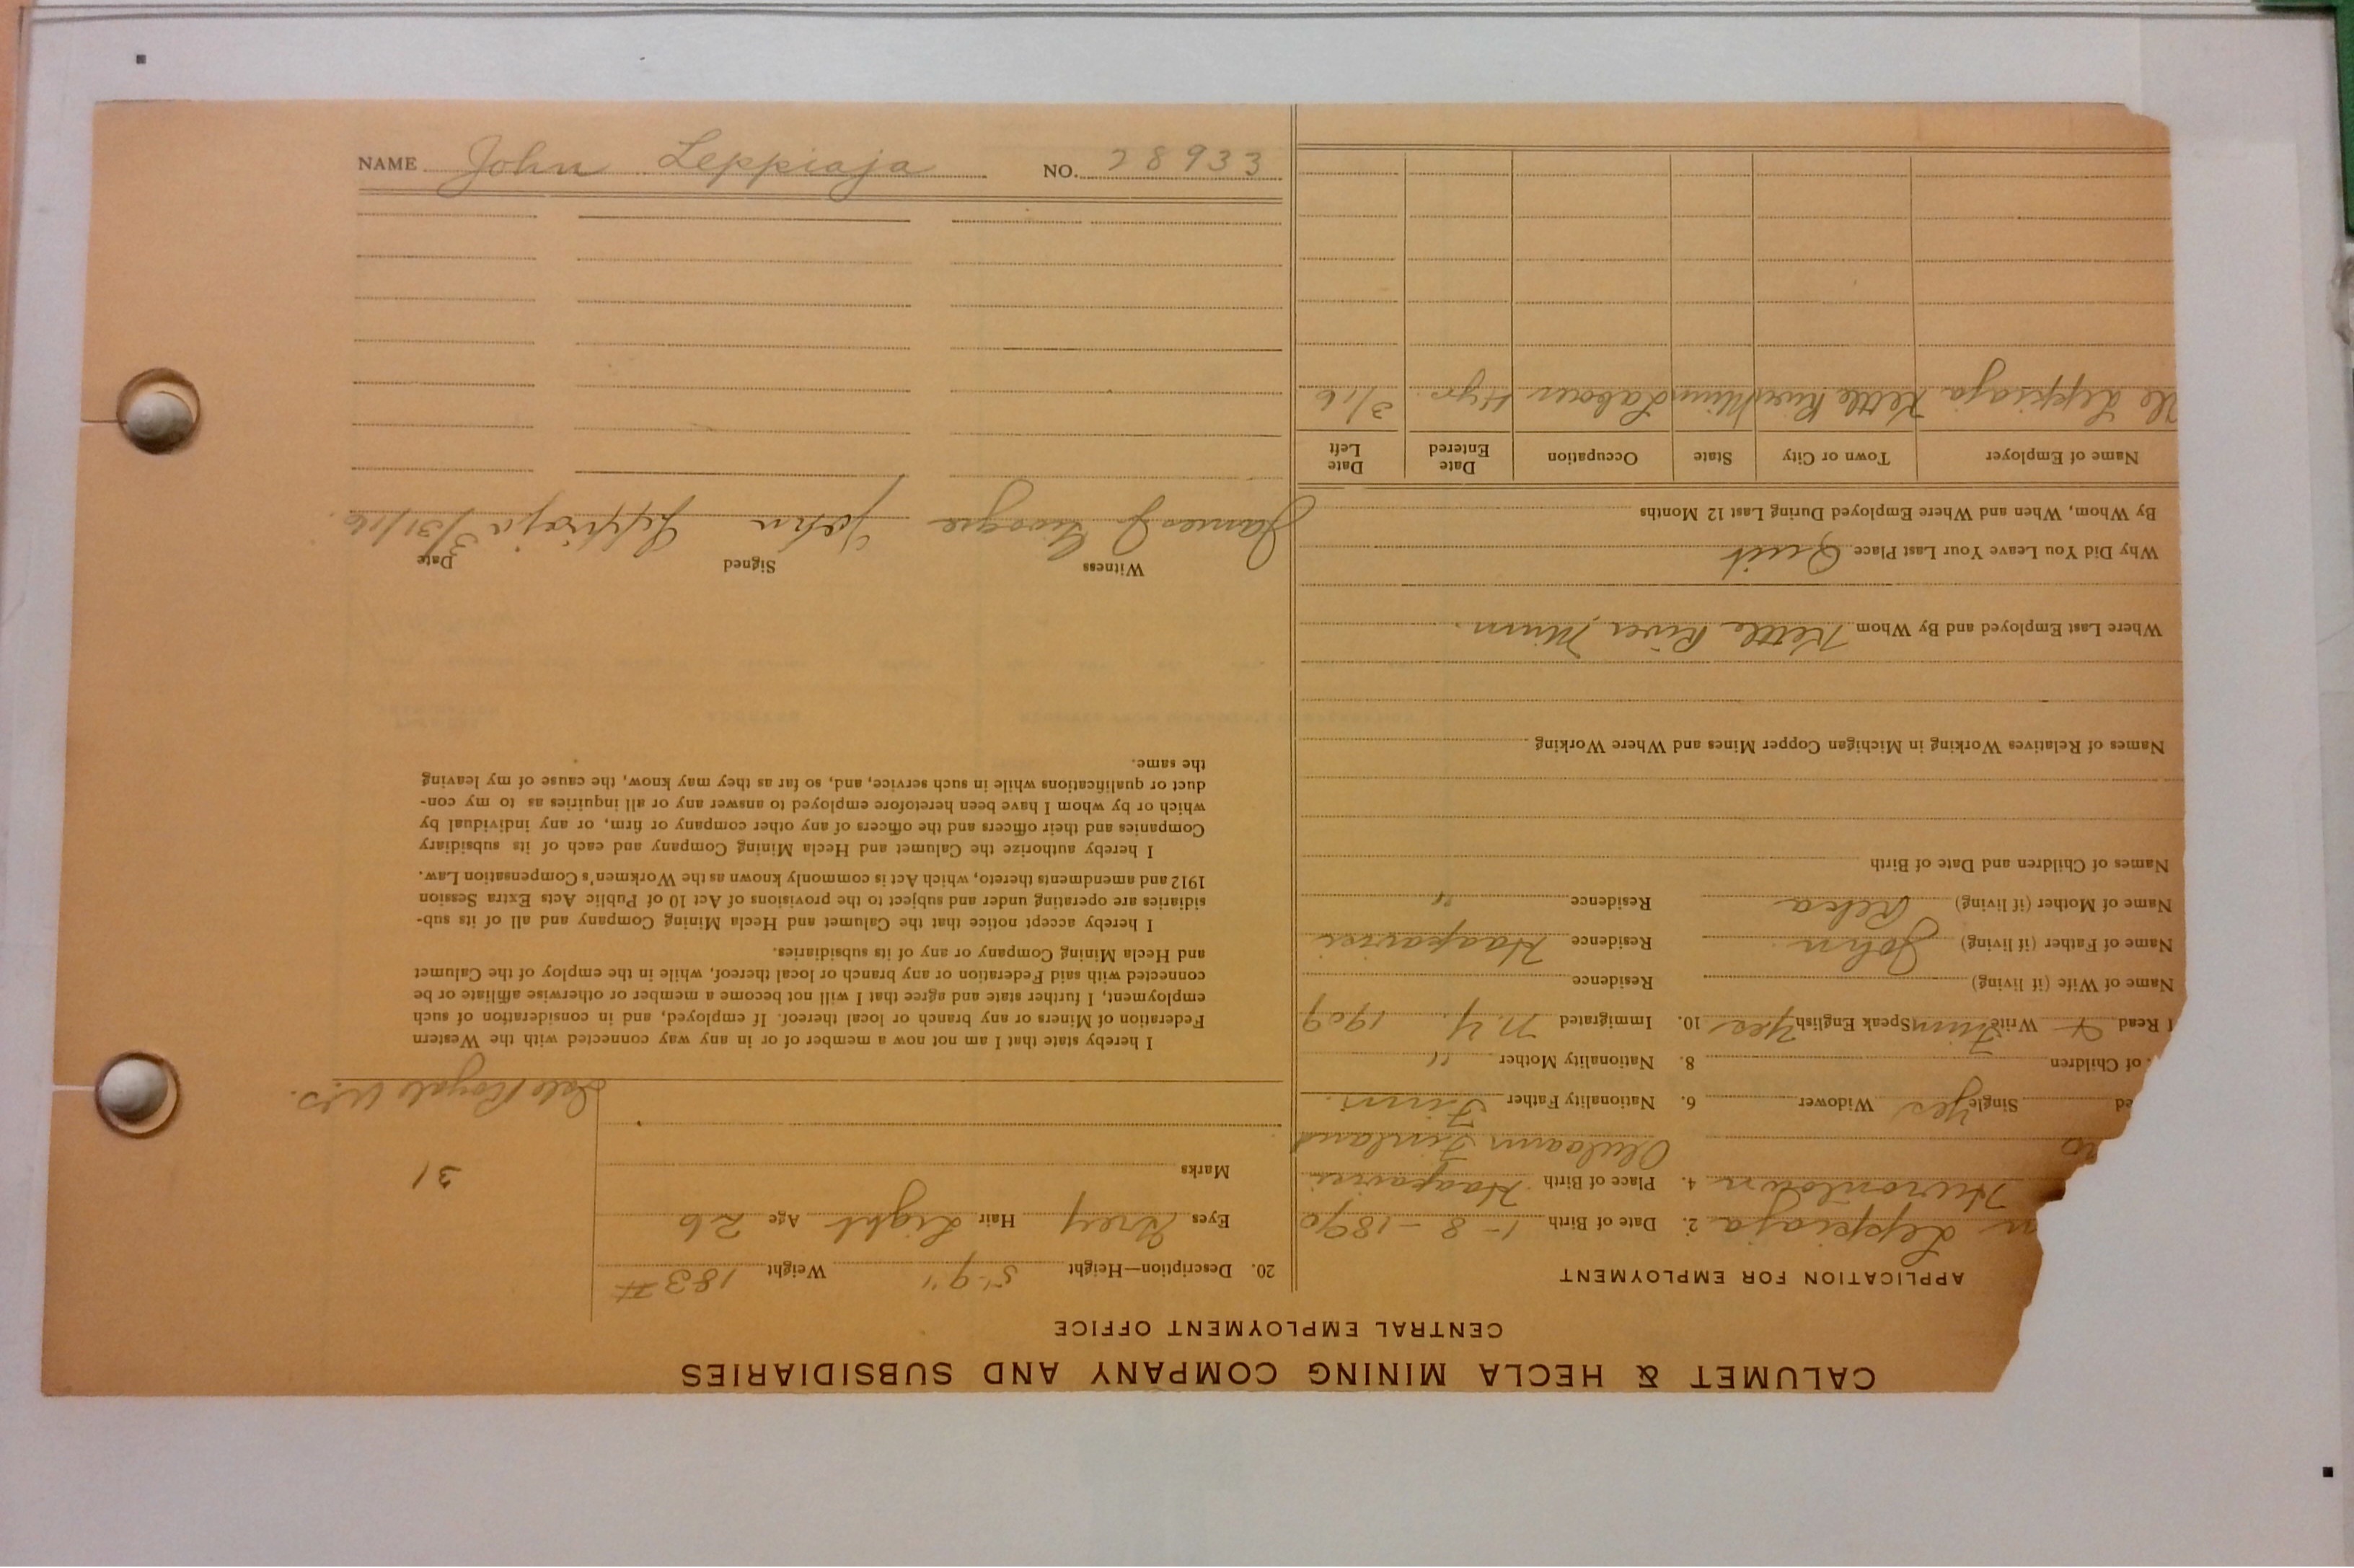 CALUMET & HECLA MINING COMPANY AND SUBSIDIARIES
CENTRAL EMPLOYMENT OFFICE
APPLICATION FOR EMPLOYMENT
n Leppiaja 2. Date of Birth 1-8-1890
Hurontown 4. Place of Birth Haapavesi
Finland
ed Single Yes Widower 6. Nationality Father Finn.
of Children 8. Nationality Mother "
Read & Write Finn Speak English Yes 10. Immigrated N.Y. 1909
Name of Wife (if living) Residence
Name of Father (if living) John Residence Haapavesi
Name of Mother (if living) Residence "
Names of Children and Date of Birth
Names of Relatives Working in Michigan Copper Mines and Where Working
Where Last Employed and By Whom Kettle River, Minn.
Why Did You Leave Your Last Place Quit
By Whom, When and Where Employed During Last 12 Months
Name of Employer Town or City State Occupation Date Entered Date Left
Leppiaja Kettle River Minn Laborer 3/16
20. Description—Height 5'-9" Weight 183#
Eyes Grey Hair Light Age 26
Marks
31
Isle Royale
I hereby state that I am not now a member of or in any way connected with the Western
Federation of Miners or any branch or local thereof. If employed, and in consideration of such
employment, I further state and agree that I will not become a member or otherwise affiliate or be
connected with said Federation or any branch or local thereof, while in the employ of the Calumet
and Hecla Mining Company or any of its subsidiaries.
I hereby accept notice that the Calumet and Hecla Mining Company and all of its sub-
sidiaries are operating under and subject to the provisions of Act 10 of Public Acts Extra Session
1912 and amendments thereto, which Act is commonly known as the Workmen's Compensation Law.
I hereby authorize the Calumet and Hecla Mining Company and each of its subsidiary
Companies and their officers and the officers of any other company or firm, or any individual by
which or by whom I have been heretofore employed to answer any or all inquiries as to my con-
duct or qualifications while in such service, and, so far as they may know, the cause of my leaving
the same.
Witness Signed Date
James J John Leppiaja 3/31/16.
NAME John Leppiaja NO. 28933